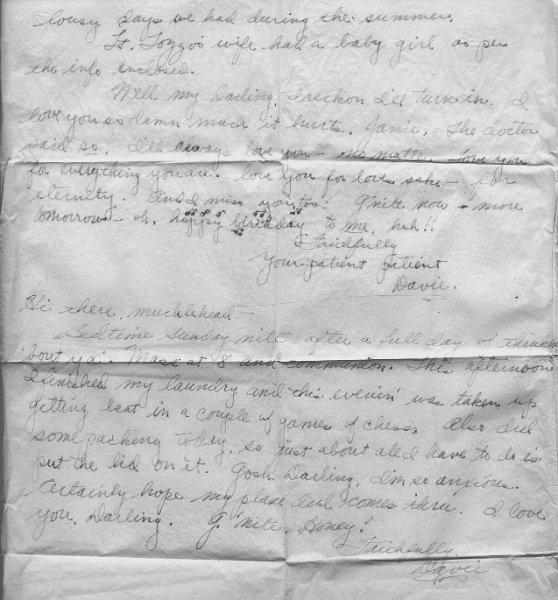 lousy days we had during the summer.
Lt. Tozzo's wife had a baby girl as per
the info enclosed.
Well my Darling, I reckon I'll turn in. I
love you so damn much it hurts, Janie. The doctor
said so! I'll always love you - no matter. Love you
for everything you are. Love you for loves sake - for
eternity. And I miss you, too! G'nite now - more
tomorrow - oh, happy birthday to me, huh!!
Faithfully
Your patient patient
Davie.
Hi there, mucklehead -
Bedtime Sunday nite after a full day of thinkin'
'bout ya. Mass at 8 and communion. This afternoon
I finished my laundry and this evenin' was taken up
getting beat in a couple of games of chess. Also did
some packing today, so just about all I have to do is
put the lid on it. Gosh Darling, I'm so anxious.
Certainly hope my plane deal comes thru. I love
you, Darling. G'nite, Honey!
Faithfully
Davie